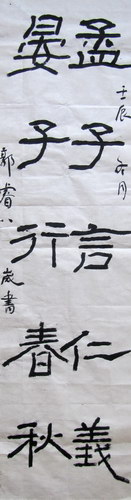 孟子言仁義
晏子行春秋
壬辰年月
郭睿八歲書